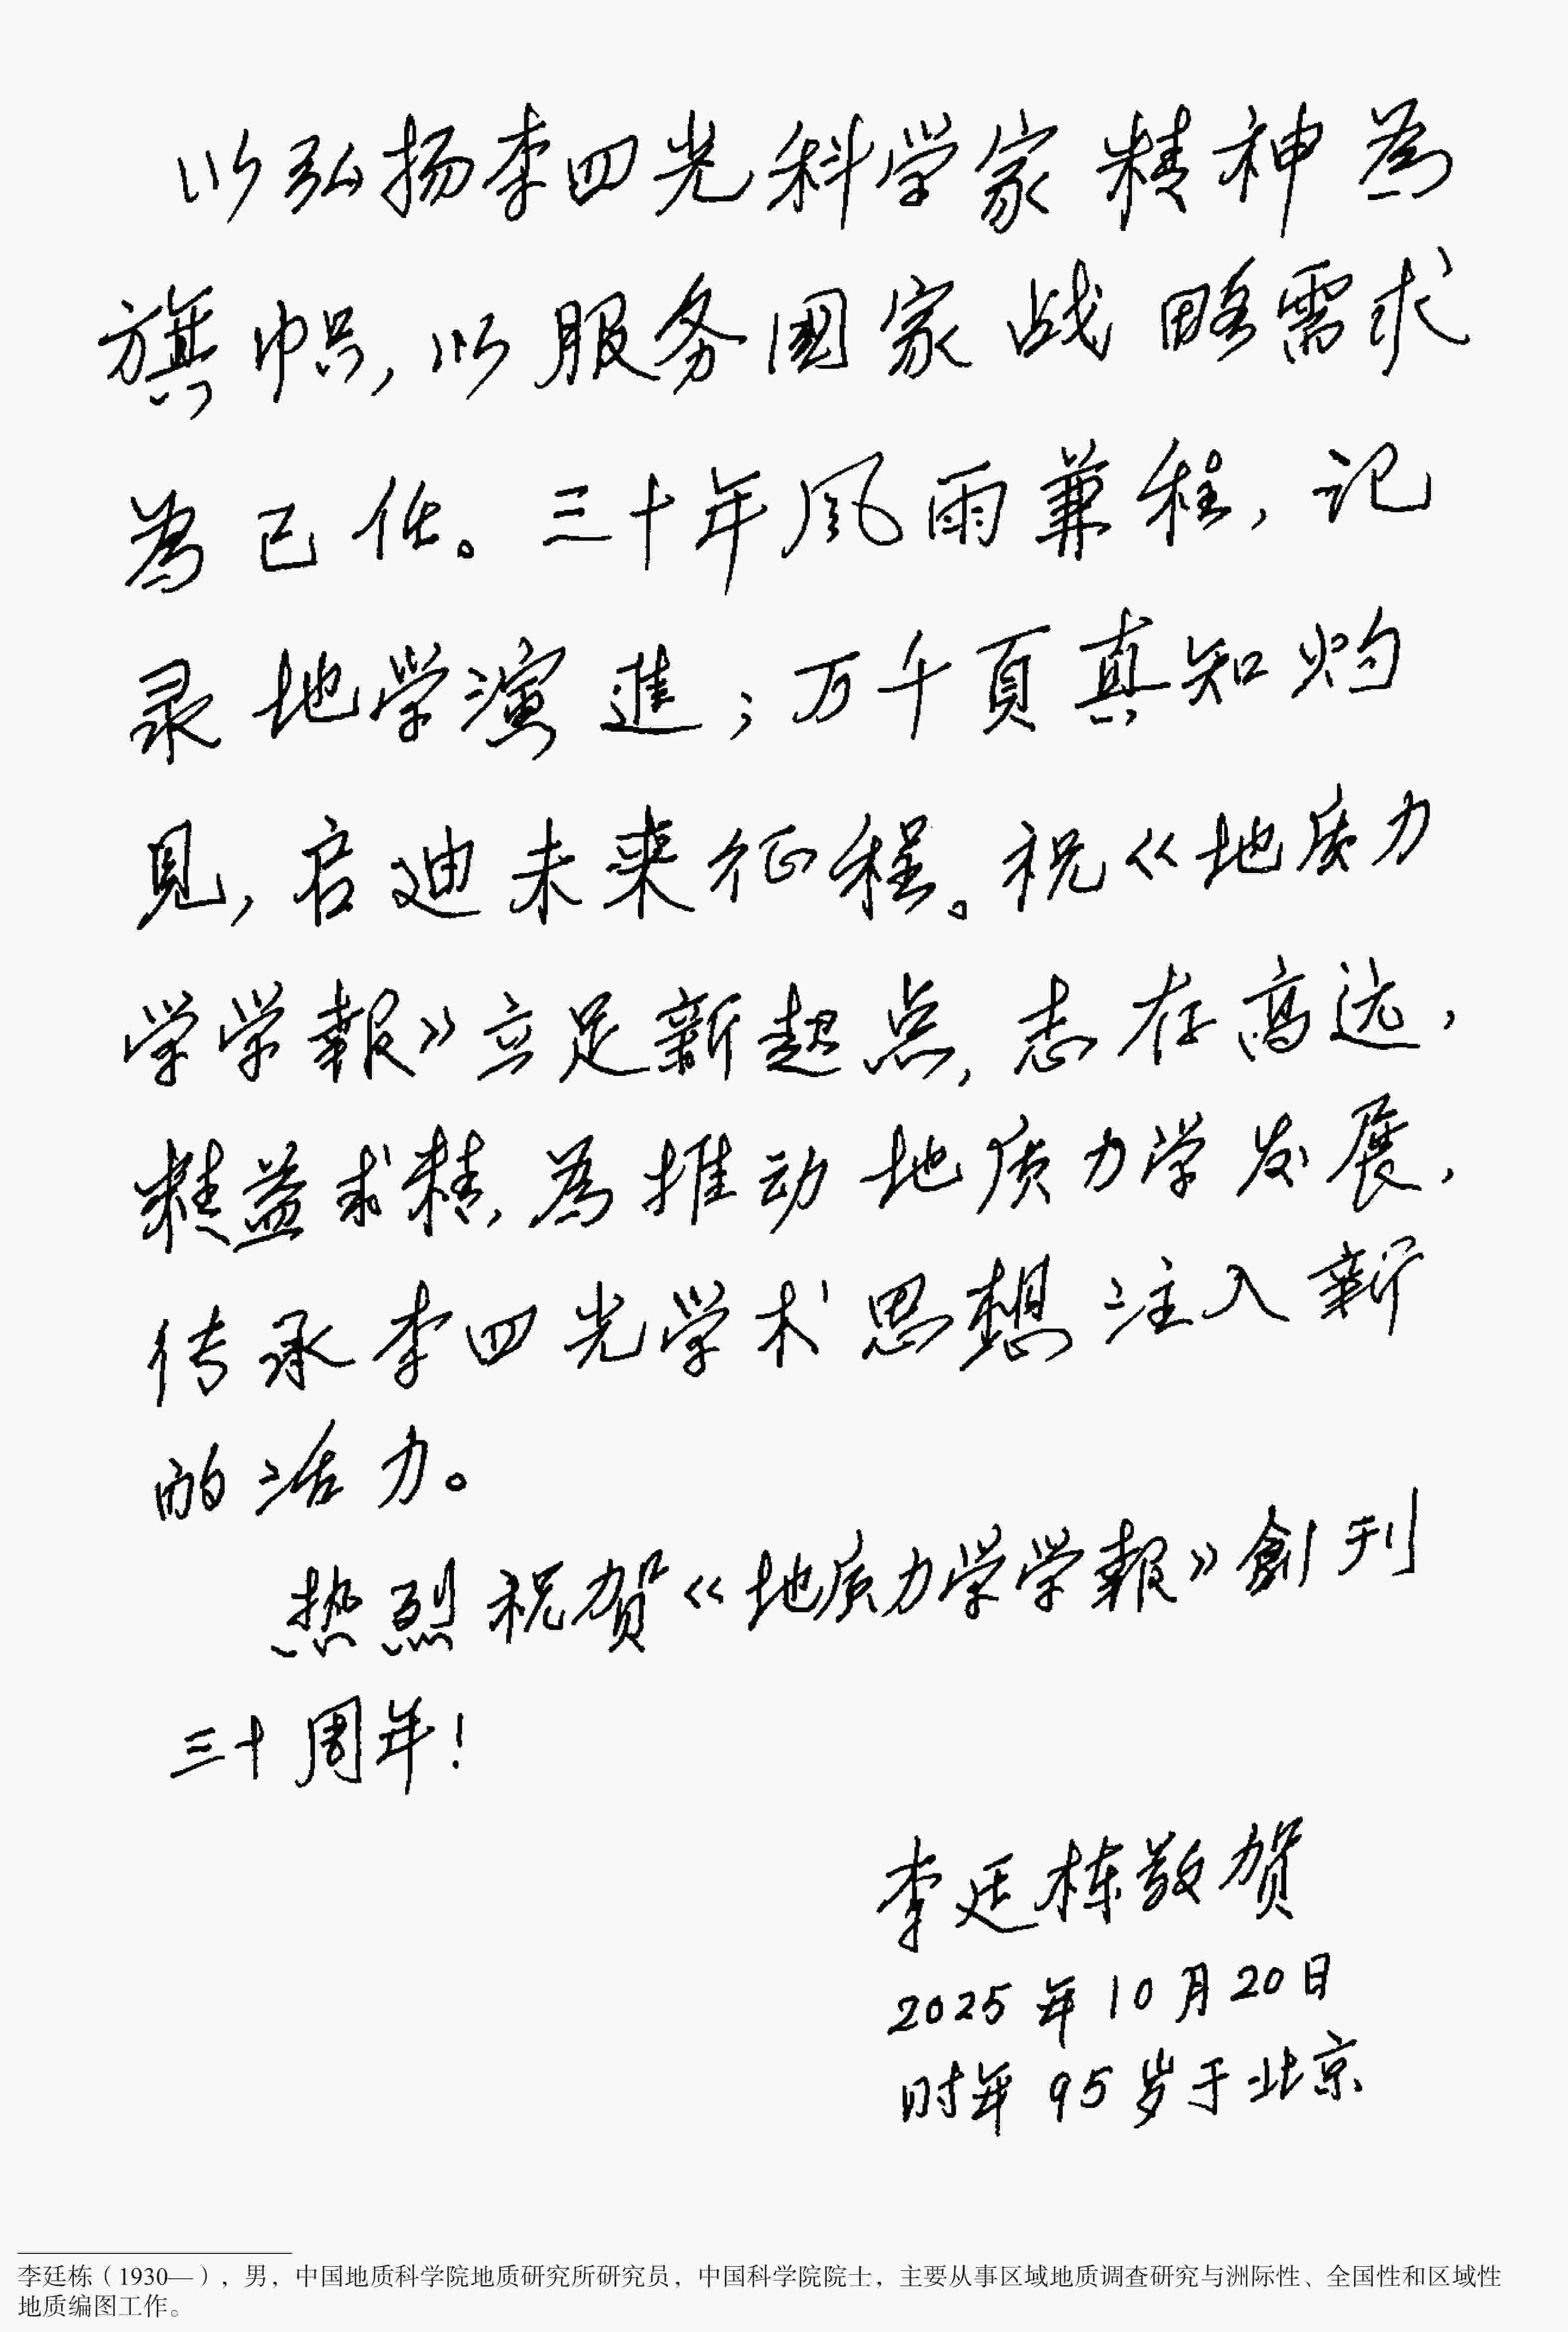 以弘扬李四光科学家精神為
旗帜，以服务國家战略需求
為己任。三十年風雨兼程，记
录地学演進；万千頁真知灼
見，启迪未来征程。祝《地质力
学学報》立足新起点，志存高远，
精益求精，為推动地质力学发展，
传承李四光学术思想注入新
的活力。
热烈祝贺《地质力学学報》創刊
三十周年！
李廷栋敬贺
2025年10月20日
时年95岁于北京
李廷栋（1930—），男，中国地质科学院地质研究所研究员，中国科学院院士，主要从事区域地质调查研究与洲际性、全国性和区域性
地质编图工作。